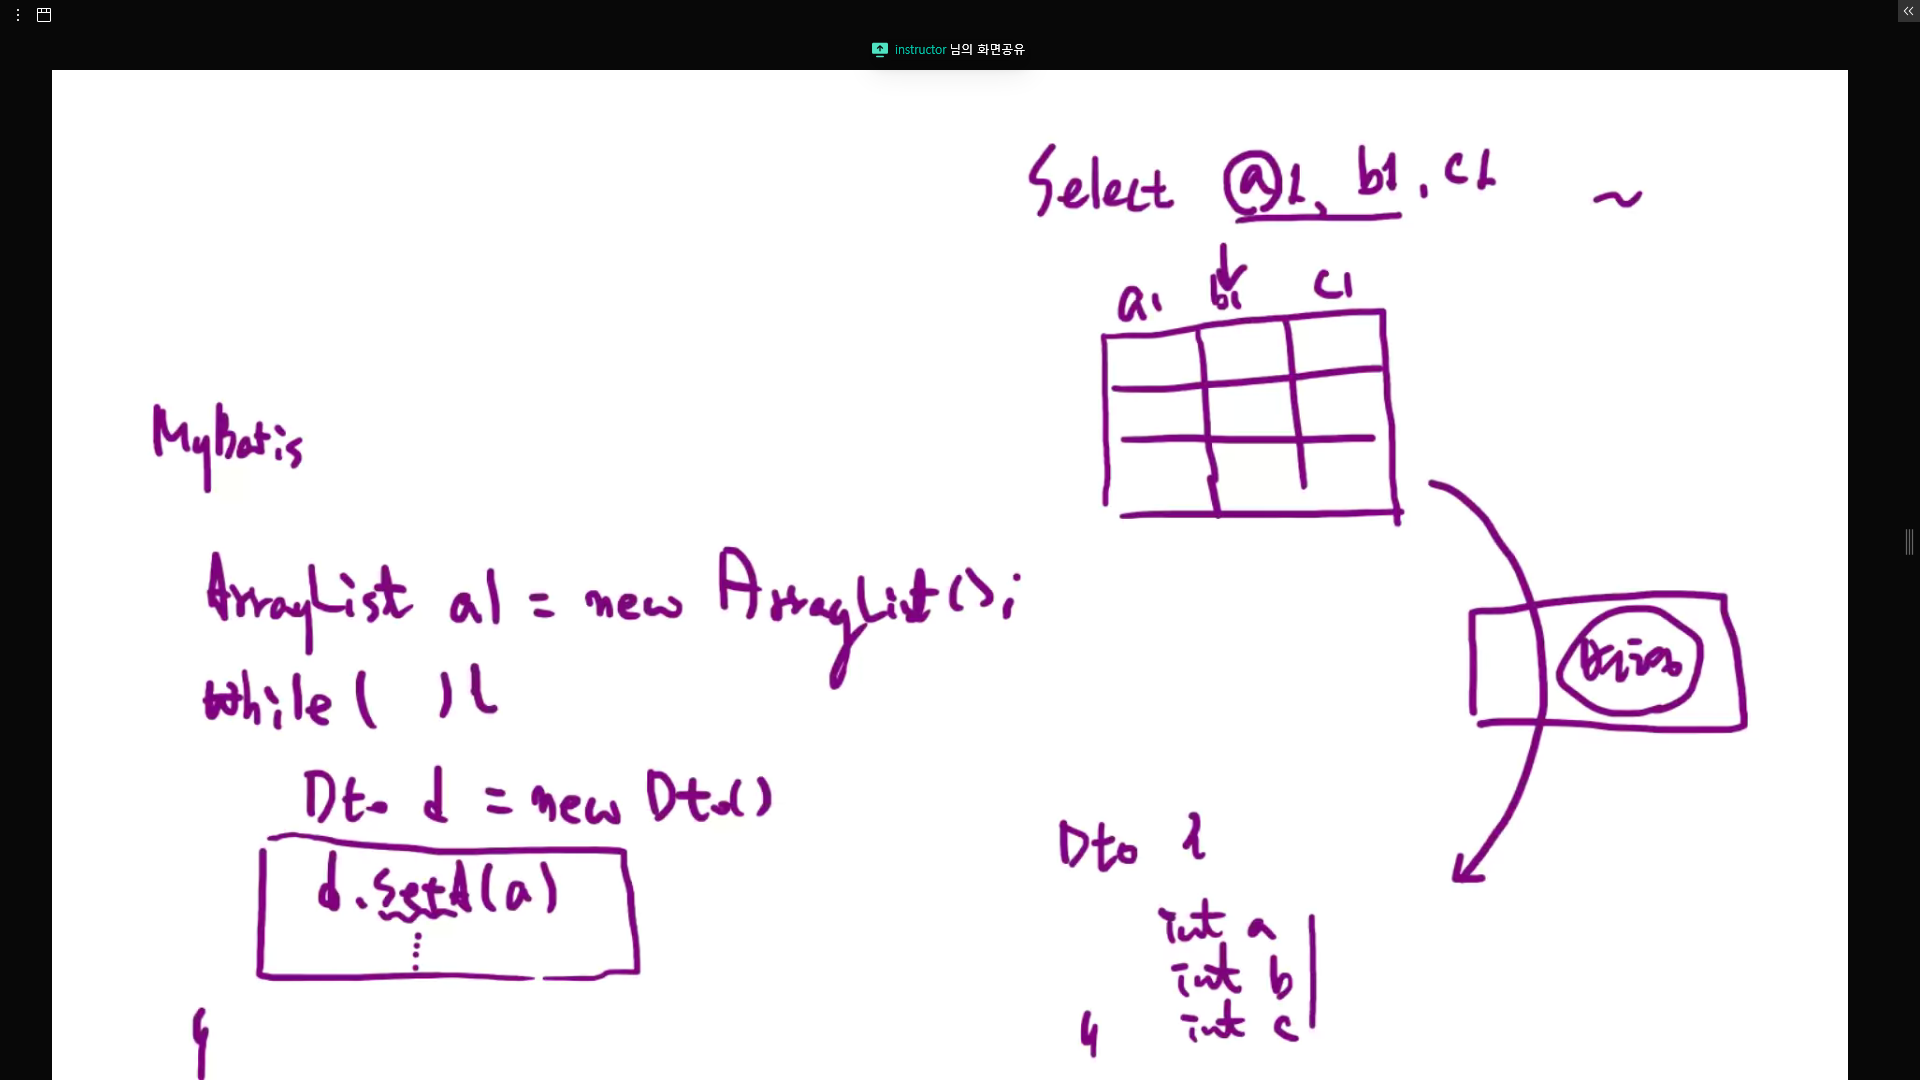 instructor 님의 화면공유
Select a1, b1, c1 ~
a1 b1 c1
MyBatis
ArrayList al = new ArrayList();
while ( ) {
Dto d = new Dto()
d.setA(a)
}
Dto {
int a
int b
int c
}